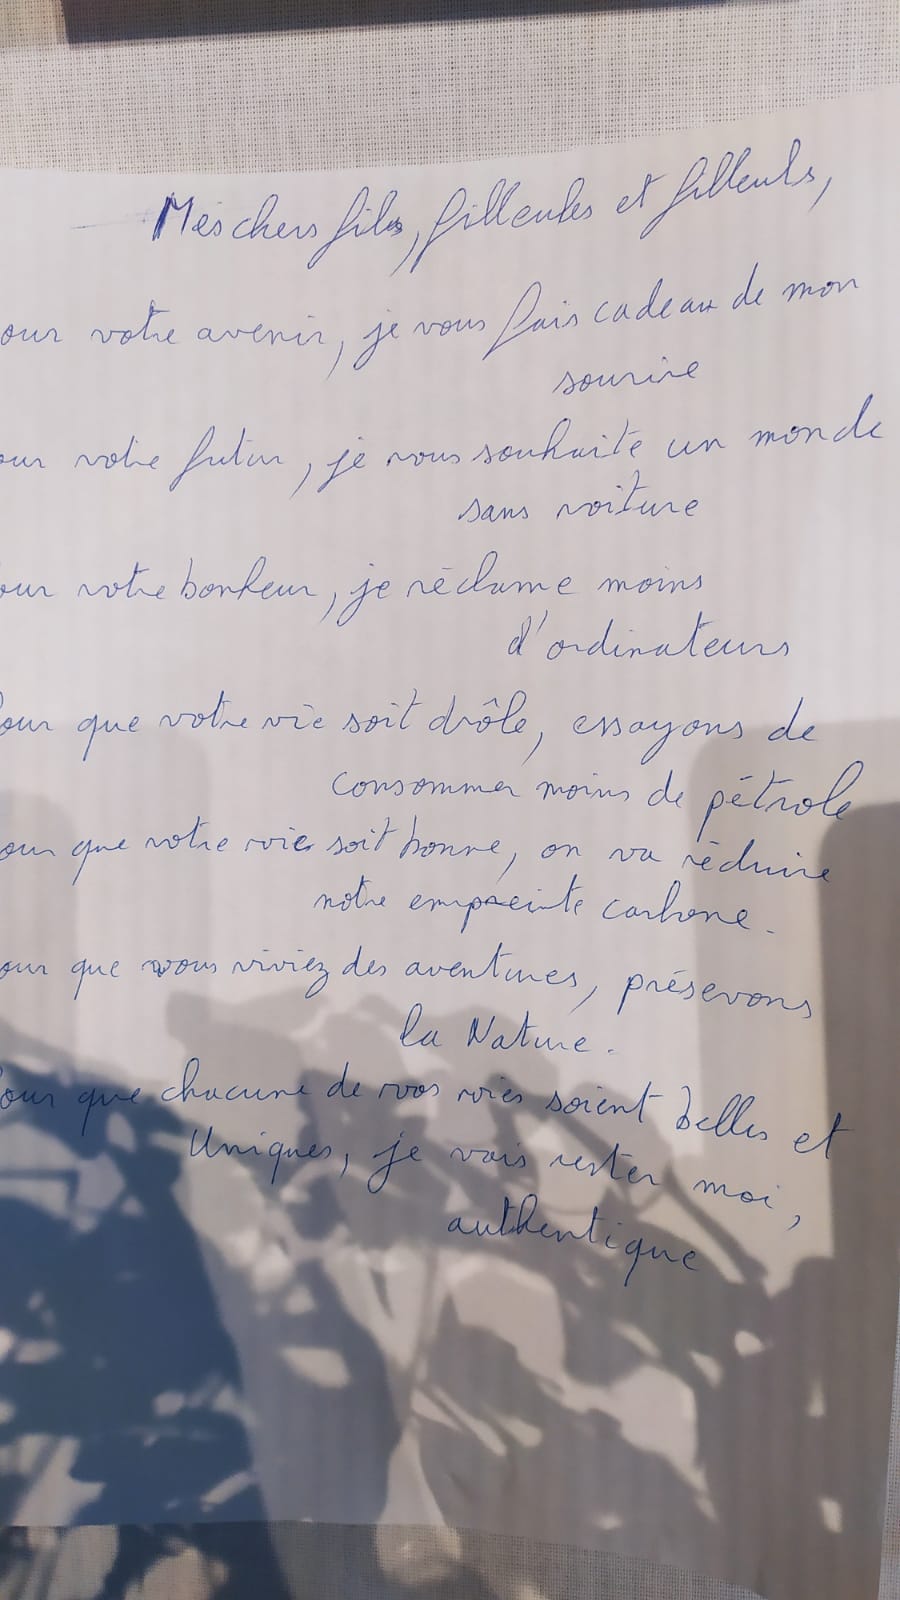 Mes chers fils, filleules et filleuls,
our votre avenir, je vous fais cadeau de mon
sourire
our votre futur, je vous souhaite un monde
sans voiture
our votre bonheur, je réclame moins
d'ordinateurs
Pour que votre vie soit drôle, essayons de
consommer moins de pétrole
our que votre vie soit bonne, on va réduire
notre empreinte carbone.
our que vous viviez des aventures, présevons
la Nature.
Pour que chacune de vos vies soient belles et
Uniques, je vais rester moi,
authentique